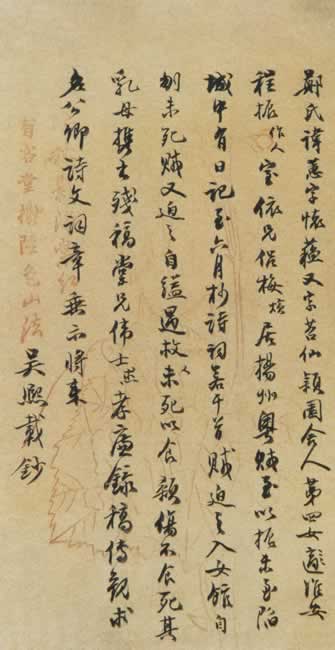 鄭氏諱蕙字懷蘊又字苕仙穎園舍人第四女適淮安
程振作人室依兄侶梅居揚州粵賊至以振未至陷
城中有日記至六月杪詩詞若干首賊迫之入女館自
刎未死賊又迫之自縊遇救人未死以食頸傷不食死其
乳母攜出殘稿堂兄偉士孝廉錄稿傳觀求
名公卿詩文詞章垂示將來
吳熙載鈔